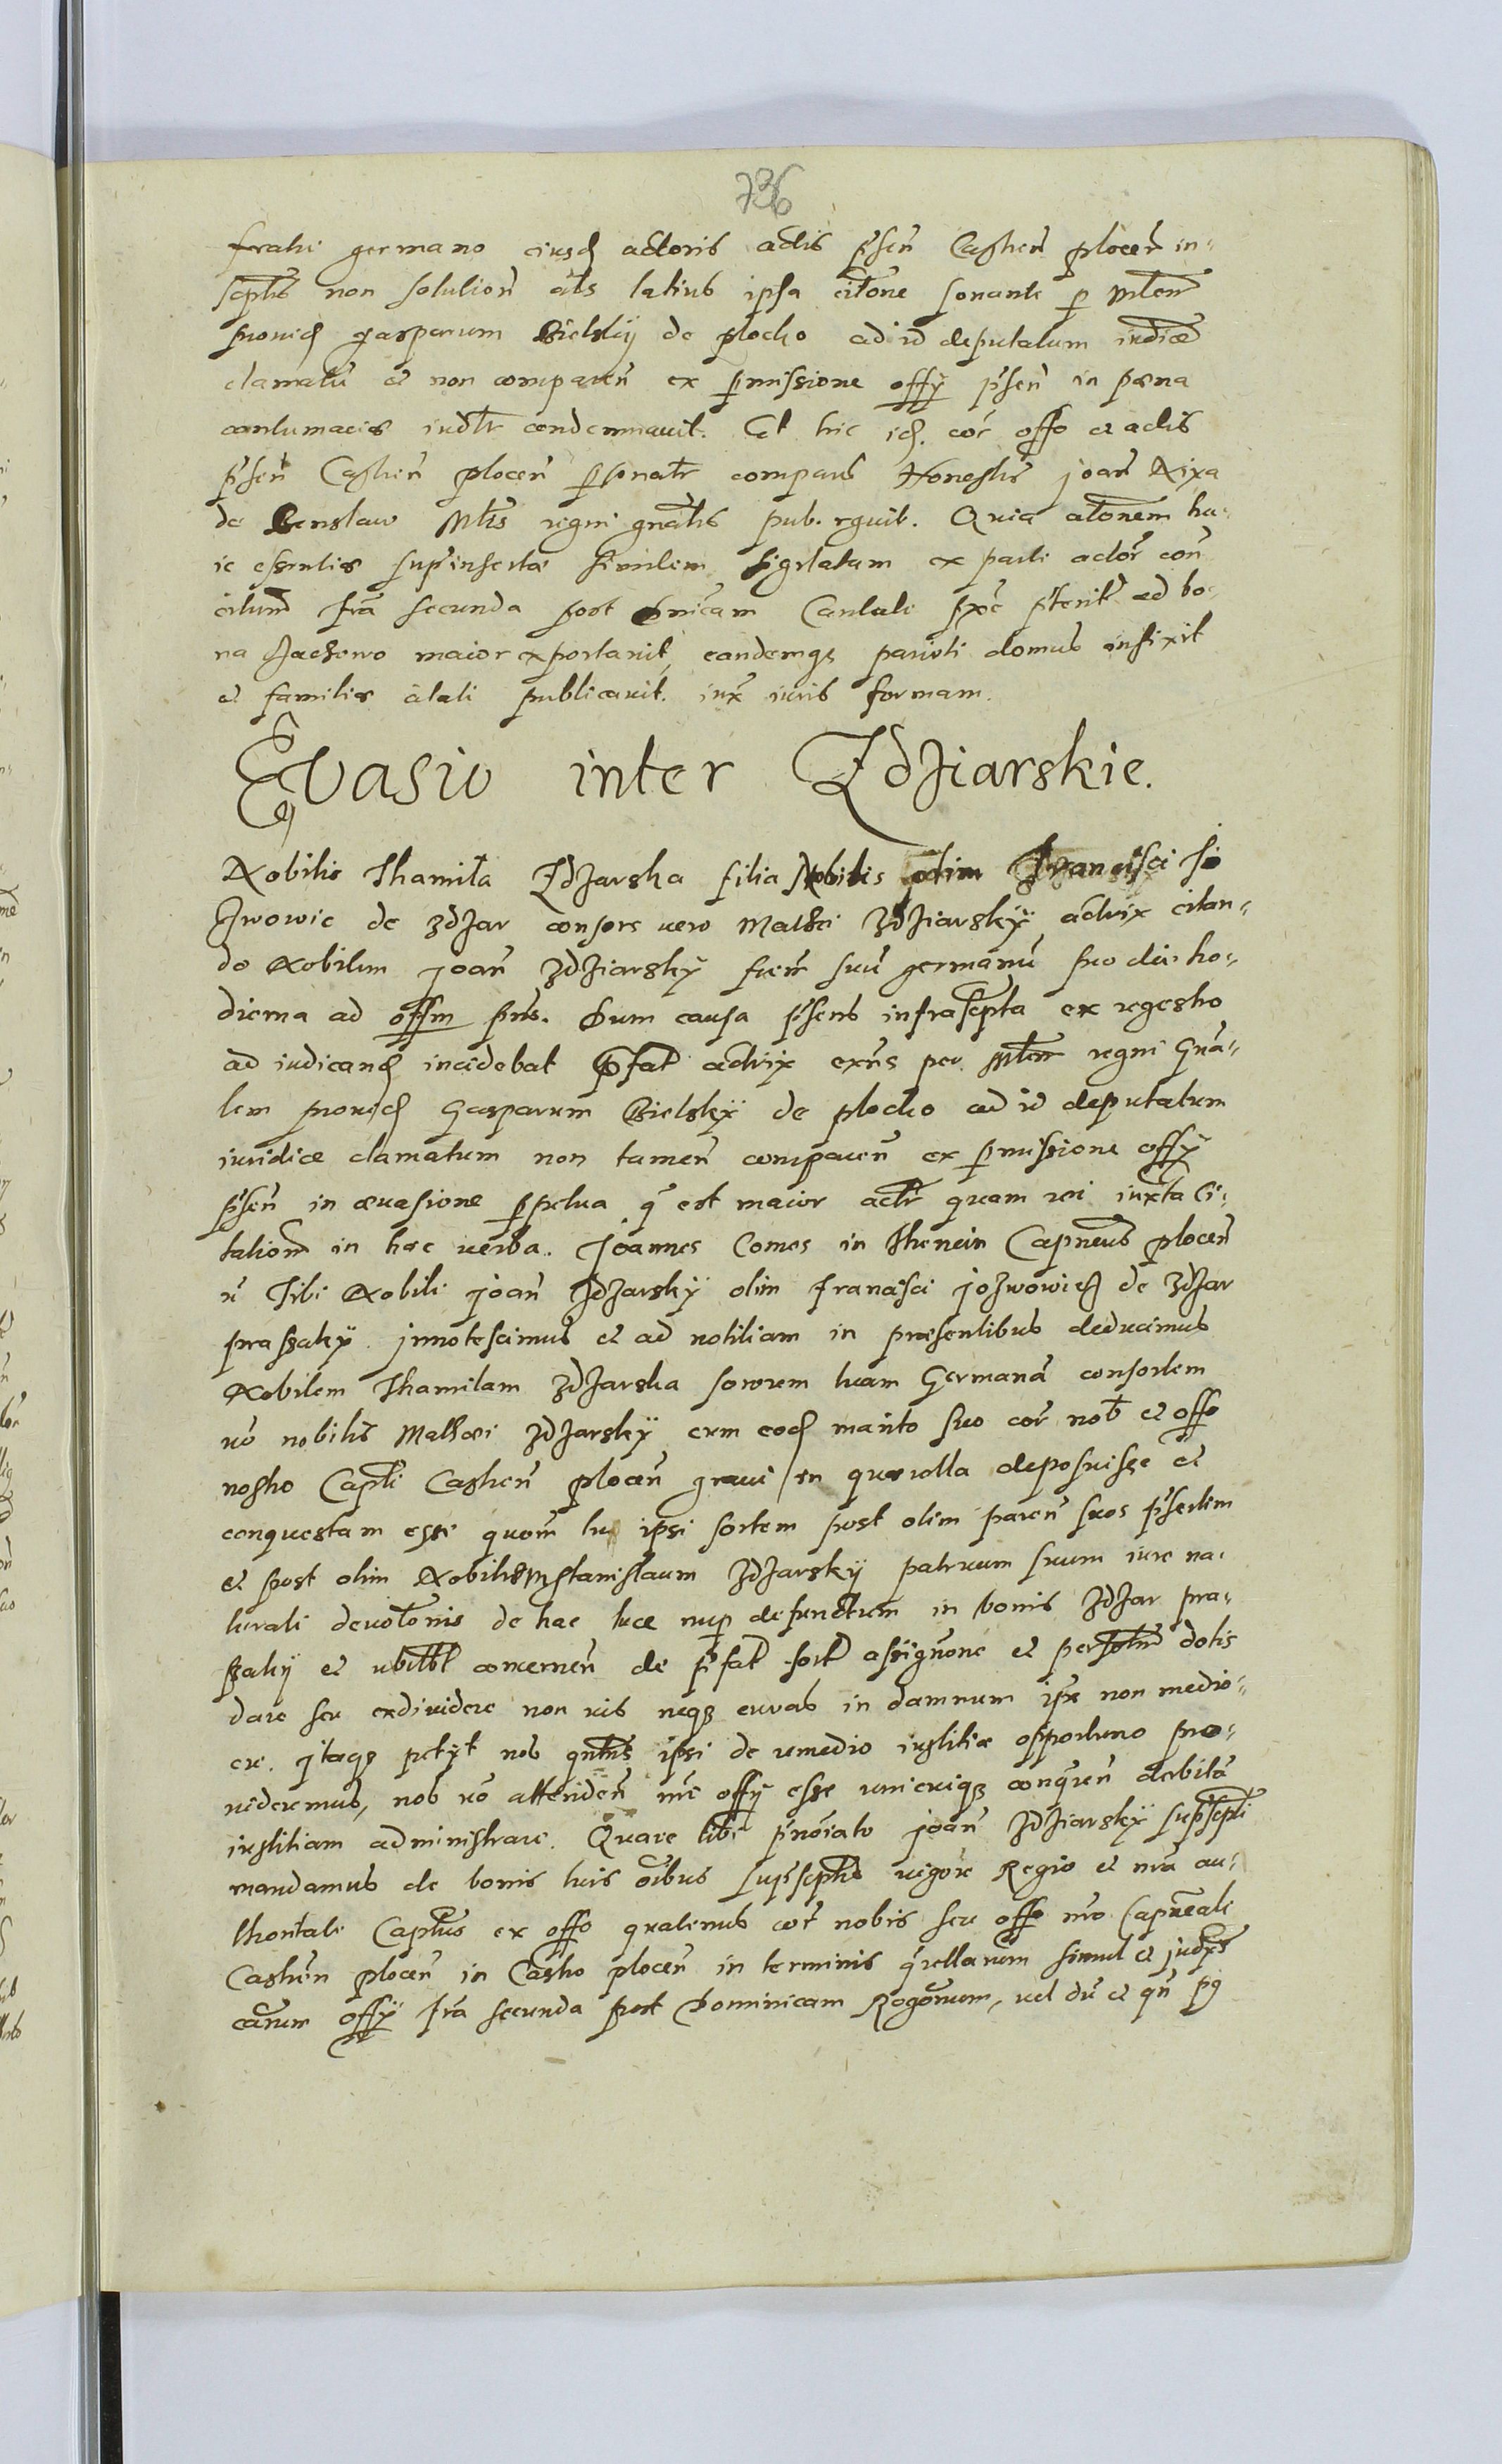 736
fratri germano eiusd actoris actis pñsen Castren plocen in-
scptis non solution als latius ipsa citone sonante p mtem
provid gasparum Bielskÿ de plocko ad id deputatum iudice
clamatu et non comparen ex pmissione offÿ pñsen in pœna
contumacie iudtr condemnavit. Et hic id. cor offo et actis
pñsen Castren plocen psonalr comparens Honestus joan Rixa
de mtis regni gnalis pub. rguit. Quia atonem hu-
ic essentiæ supinsertæ similem sigillatam ex parte actor con
citum fria secunda post dnicam Cantate pxe pterit ad bo-
na Jaczewo maior exportavit, eandemqs parieti domus infixit
et familiæ ationi publicavit. iux iuris formam.
Evasio inter ZdZiarskie.
Nobilis Thamila ZdZarska filia Nobilis olim Francisci Jo
Zwowic de ZdZar consors vero Mathei ZdZiarskÿ actrix citan-
do Nobilem joan ZdZiarskÿ frem suu germanu pro die ho-
dierna ad offm pns. Dum causa pñsens infrascpta ex regestro
ad iudicand incidebat pfat actrix exns per mtem regni Gna-
lem provid Gasparum Bielskÿ de plocko ad id deputatum
iuridice clamatum non tamen comparen ex pmissione offÿ
pñsen in evasione ppetua q est maior actr quam rei iuxta ci-
tationem in hæc verba. Joannes Comes in Thenein Capneus plocen
Tibi Nobili joan ZdZarskÿ olim francisci joZwowicz de ZdZar
praszakÿ innotescimus et ad notitiam in præsentibus deducimus
Nobilem Thamilam ZdZarska sororem tuam Germana consortem
vo nobilis Mathæi ZdZarskÿ cum eod marito suo cor nob et offo
nostro Capli Castren plocen gravi in querella deposuisse et
conquestam esse quom tu ipsi sortem post olim paren suos pñsertim
et post olim Nobilem Stanislaum ZdZarskÿ patruum suum iure na-
turali devotonis de hac luce nup defunctum in bonis ZdZar pra-
szakÿ et ubilibet concernen de pfat sort assignone et dotis
dare seu exdividere non vis neqz curas in damnum ipse non medio-
cre. itaqz petÿt nob qntus ipsi de remedio iustitiæ opportuno pro-
videremus, nob vo attenden nri offÿ esse unicuiqz conqren debita
iustitiam administrare. Quare tibi pnoiato joan ZdZiarskÿ supscpti
mandamus de bonis tuis oibus supscptis vigore Regio et nra au-
thoritate Capnus ex offo quatenus cor nobis seu offo nro Capneali
Castren plocen in Castro plocen in terminis qrellarum simul et judys
carum offÿ fria secunda post Dominicam Rogonum, vel du et qn pg